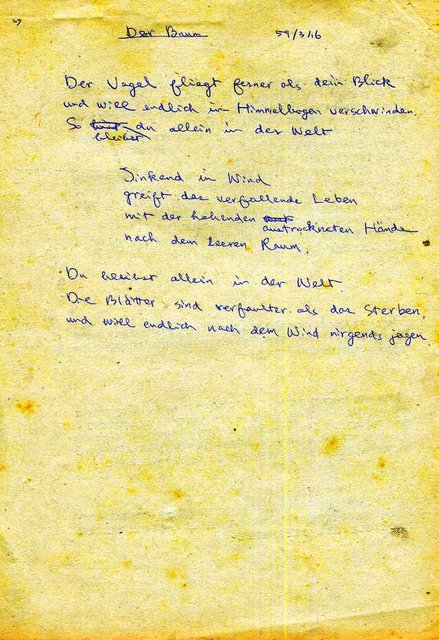 Der Baum 59/3/16
Der Vogel fliegt ferner als dein Blick
und will endlich im Himmelbogen verschwinden.
So du allein in der Welt
bleibst
Sinkend im Wind
greift das verfallende Leben
mit der hohenden austrockneten Hände
nach dem leeren Raum,
Du bleibst allein in der Welt
Die Blätter sind verfaulter als das Sterben,
und will endlich nach dem Wind nirgends jagen.